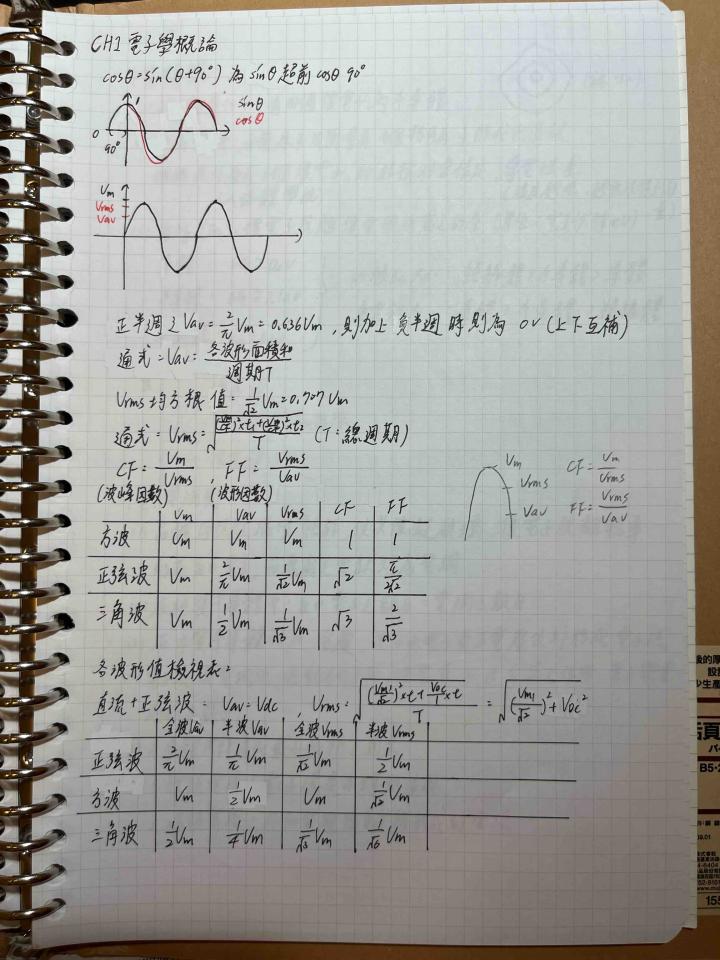 CH1 電子學概論
cosθ=sin(θ+90°) 為 sinθ超前 cosθ 90°
1
sinθ
cosθ
0
90°
Vm
Vrms
Vav
正半週之Vav=2/π Vm=0.636Vm, 則加上負半週時則為 0V(上下互補)
通式=Vav=各波形面積和/週期T
Vrms均方根值=1/√2 Vm=0.707Vm
(T:總週期)
CF=Vm/Vrms, FF=Vrms/Vav
(波峰因數) (波形因數)
Vm
Vrms
Vav
CF=Vm/Vrms
FF=Vrms/Vav
Vm Vav Vrms CF FF
方波 Vm Vm Vm 1 1
正弦波 Vm 2/π Vm 1/√2 Vm √2 π/2√2
三角波 Vm 1/2 Vm 1/√3 Vm √3 2/√3
各波形值檢視表:
直流+正弦波= Vav=Vdc, Vrms=√((Vm1/√2)²×t+VDC/1×t)/T = √(Vm1/√2)²+VDC²
全波Vav 半波Vav 全波Vrms 半波Vrms
正弦波 2/π Vm 1/π Vm 1/√2 Vm 1/2 Vm
方波 Vm 1/2 Vm Vm 1/√2 Vm
三角波 1/2 Vm 1/4 Vm 1/√3 Vm 1/√6 Vm
後的厚
設計
少生產
活頁
B5·2
155